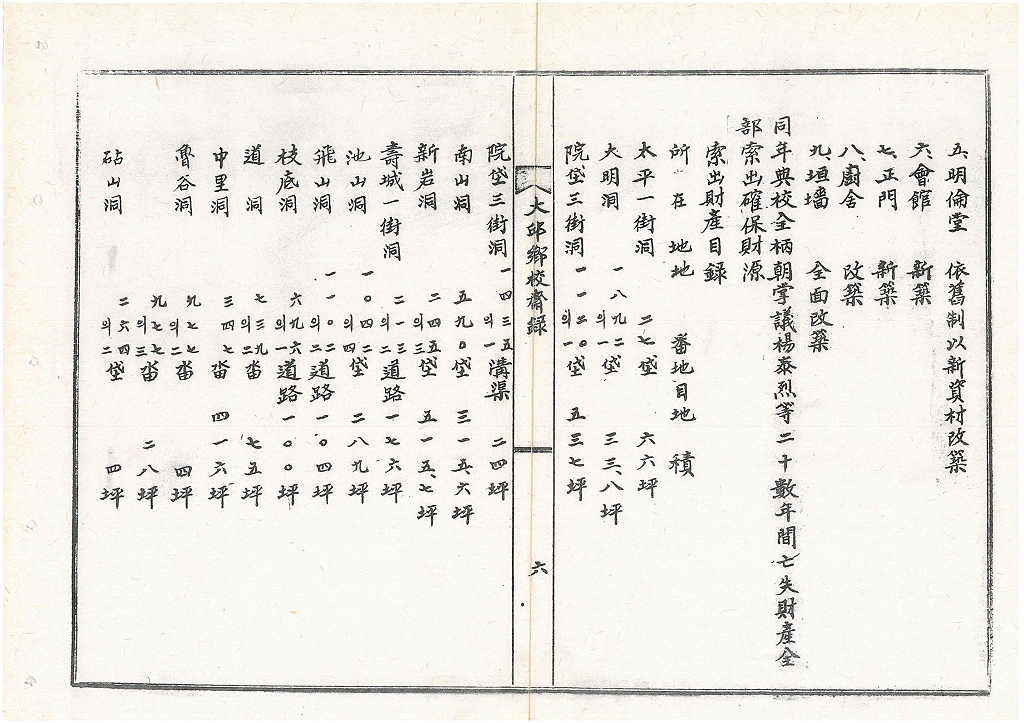 五、明倫堂 依舊制以新資材改築
六、會館 新築
七、正門 新築
八、廚舍 改築
九、垣墻 全面改築
同年典校全柄朝掌議楊泰烈等二十數年間亡失財產全
部索出確保財源
索出財產目録
所在地 地番 地目 地積
太平一街洞 二七垈 六六坪
大明洞 一八九二의一垈 三三、八坪
院垈三街洞 一一二〇의一垈 五三七坪
大邱鄕校齋録 六
院垈三街洞 一四三五의一溝渠 二四坪
南山洞 五九〇垈 三一五、六坪
新岩洞 二四五垈 五一五、七坪
壽城一街洞 二一三의二道路 一七六坪
池山洞 一〇四二의四垈 二八九坪
飛山洞 一一〇二의二道路 一〇四坪
枝底洞 六九六의一道路 一〇〇坪
道洞 七三九의二畓 七五坪
中里洞 三四七畓 四一六坪
魯谷洞 九七七의二畓 四坪
九七七의三畓 二八坪
砧山洞 二六四의二垈 四坪